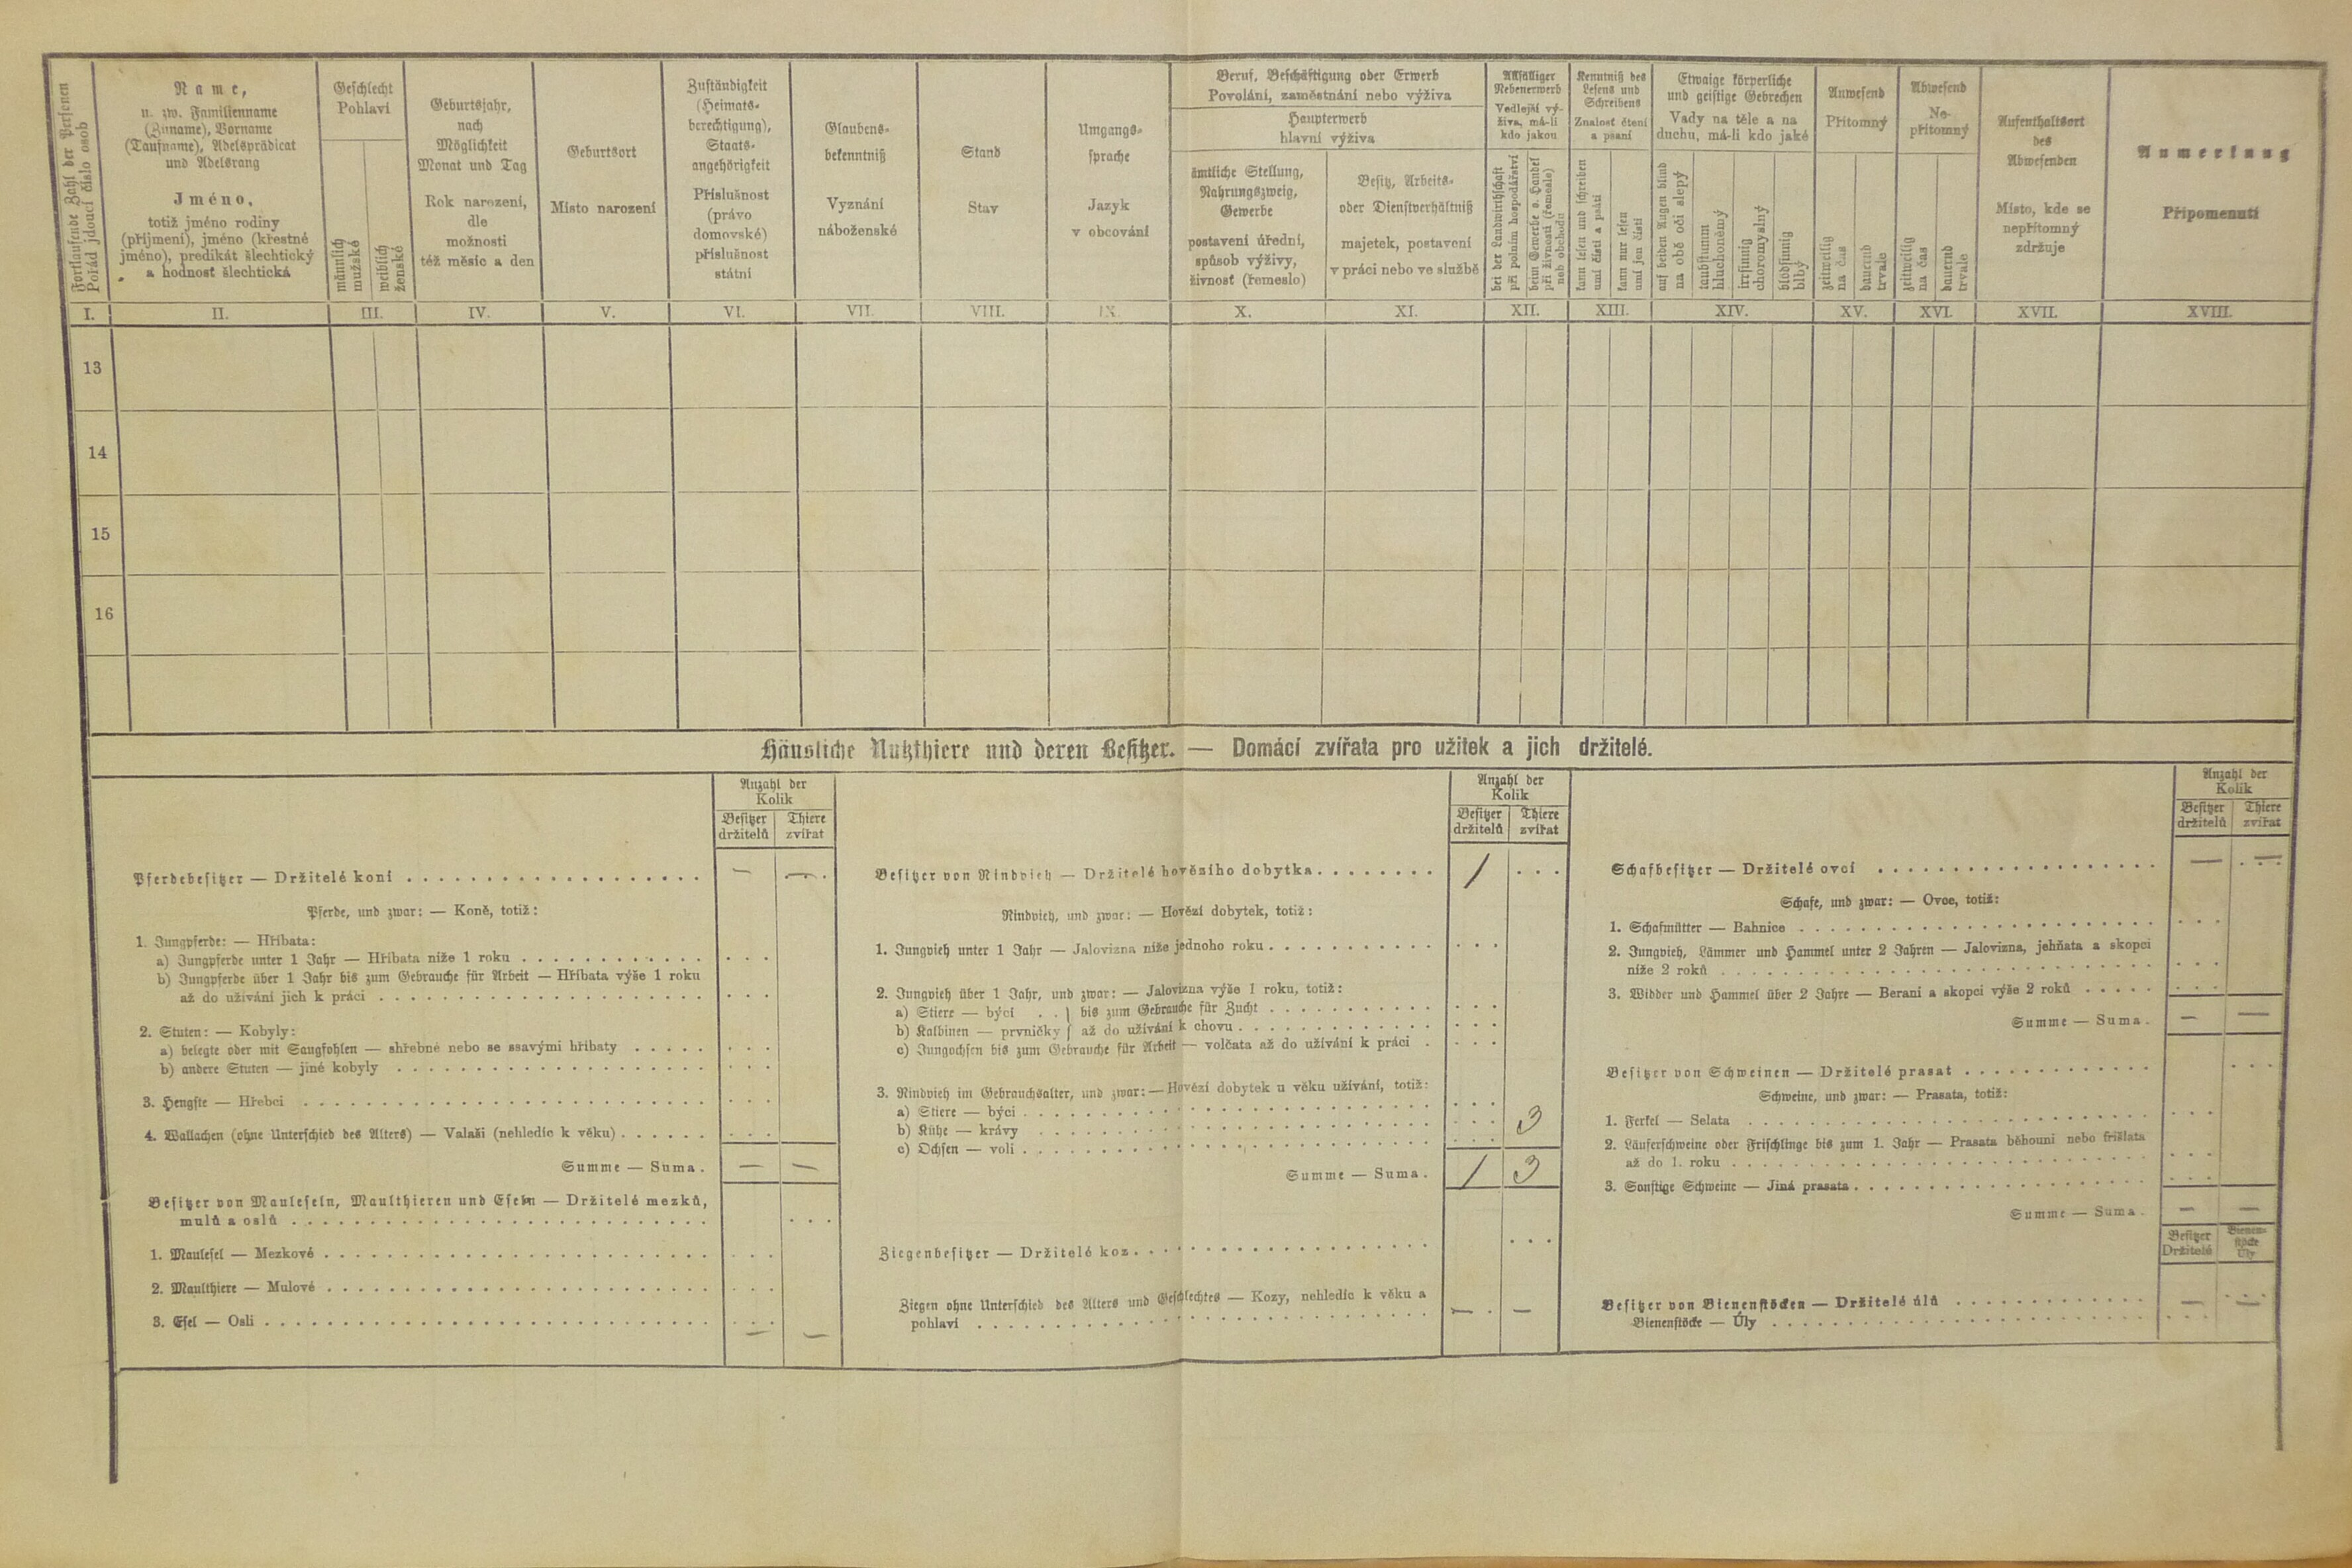 Fortlaufende Zahl der Personen
Pořád jdoucí číslo osob
Name,
u. zw. Familienname
(Zuname), Vorname
(Taufname), Adelsprädicat
und Adelsrang
Jméno,
totiž jméno rodiny
(příjmení), jméno (křestné
jméno), predikát šlechtický
a hodnost šlechtická
Geschlecht
Pohlaví
männlich
mužské
weiblich
ženské
Geburtsjahr,
nach
Möglichkeit
Monat und Tag
Rok narození,
dle
možnosti
též měsíc a den
Geburtsort
Místo narození
Zuständigkeit
(Heimats-
berechtigung),
Staats-
angehörigkeit
Příslušnost
(právo
domovské)
příslušnost
státní
Glaubens-
bekenntniß
Vyznání
náboženské
Stand
Stav
Umgangs-
sprache
Jazyk
v obcování
Beruf, Beschäftigung oder Erwerb
Povolání, zaměstnání nebo výživa
Haupterwerb
hlavní výživa
ämtliche Stellung,
Nahrungszweig,
Gewerbe
postavení úřední,
spůsob výživy,
živnosť (řemeslo)
Besitz, Arbeits-
oder Dienstverhältniß
majetek, postavení
v práci nebo ve službě
Allfälliger
Nebenerwerb
Vedlejší vý-
živa, má-li
kdo jakou
bei der Landwirthschaft
při polním hospodářství
beim Gewerbe o. Handel
při živnosti (řemesle)
neb obchodu
Kenntniß des
Lesens und
Schreibens
Znalosť čtení
a psaní
kann lesen und schreiben
umí čísti a psáti
kann nur lesen
umí jen čísti
Etwaige körperliche
und geistige Gebrechen
Vady na těle a na
duchu, má-li kdo jaké
auf beiden Augen blind
na obě oči slepý
taubstumm
hluchoněmý
irrsinnig
choromyslný
blödsinnig
blbý
Anwesend
Přítomný
zeitweilig
na čas
dauernd
trvale
Abwesend
Ne-
přítomný
zeitweilig
na čas
dauernd
trvale
Aufenthaltsort
des
Abwesenden
Místo, kde se
nepřítomný
zdržuje
Anmerkung
Připomenutí
I. II. III. IV. V. VI. VII. VIII. IX. X. XI. XII. XIII. XIV. XV. XVI. XVII. XVIII.
13
14
15
16
Häusliche Nutzthiere und deren Besitzer. — Domácí zvířata pro užitek a jich držitelé.
Anzahl der
Kolik
Besitzer Thiere
držitelů zvířat
Pferdebesitzer — Držitelé koní . . . — —
Pferde, und zwar: — Koně, totiž:
1. Jungpferde: — Hříbata:
a) Jungpferde unter 1 Jahr — Hříbata níže 1 roku . . .
b) Jungpferde über 1 Jahr bis zum Gebrauche für Arbeit — Hříbata výše 1 roku
až do užívání jich k práci . . .
2. Stuten: — Kobyly:
a) belegte oder mit Saugfohlen — shřebné nebo se ssavými hříbaty . . .
b) andere Stuten — jiné kobyly . . .
3. Hengste — Hřebci . . .
4. Wallachen (ohne Unterschied des Alters) — Valaši (nehledíc k věku) . . .
Summe — Suma. — —
Besitzer von Mauleseln, Maulthieren und Eseln — Držitelé mezků,
mulů a oslů . . .
1. Maulesel — Mezkové . . .
2. Maulthiere — Mulové . . .
3. Esel — Osli . . . — —
Anzahl der
Kolik
Besitzer Thiere
držitelů zvířat
Besitzer von Rindvieh — Držitelé hovězího dobytka . . . 1 . . .
Rindvieh, und zwar: — Hovězí dobytek, totiž:
1. Jungvieh unter 1 Jahr — Jalovizna níže jednoho roku . . .
2. Jungvieh über 1 Jahr, und zwar: — Jalovizna výše 1 roku, totiž:
a) Stiere — býci . . } bis zum Gebrauche für Zucht . . .
b) Kalbinen — prvničky } až do užívání k chovu . . .
c) Jungochsen bis zum Gebrauche für Arbeit — volčata až do užívání k práci . . .
3. Rindvieh im Gebrauchsalter, und zwar: — Hovězí dobytek u věku užívání, totiž:
a) Stiere — býci . . .
b) Kühe — krávy . . . 3
c) Ochsen — voli . . .
Summe — Suma. 1 3
Ziegenbesitzer — Držitelé koz . . .
Ziegen ohne Unterschied des Alters und Geschlechtes — Kozy, nehledíc k věku a
pohlaví . . . — —
Anzahl der
Kolik
Besitzer Thiere
držitelů zvířat
Schafbesitzer — Držitelé ovcí . . . — —
Schafe, und zwar: — Ovce, totiž:
1. Schafmütter — Bahnice . . .
2. Jungvieh, Lämmer und Hammel unter 2 Jahren — Jalovizna, jehňata a skopci
níže 2 roků . . .
3. Widder und Hammel über 2 Jahre — Berani a skopci výše 2 roků . . .
Summe — Suma. — —
Besitzer von Schweinen — Držitelé prasat . . .
Schweine, und zwar: — Prasata, totiž:
1. Ferkel — Selata . . .
2. Läuferschweine oder Frischlinge bis zum 1. Jahr — Prasata běhouni nebo frišlata
až do 1. roku . . .
3. Sonstige Schweine — Jiná prasata . . .
Summe — Suma. — —
Besitzer Bienen-
Držitelé stöcke
Úly
Besitzer von Bienenstöcken — Držitelé úlů . . . — —
Bienenstöcke — Úly . . .